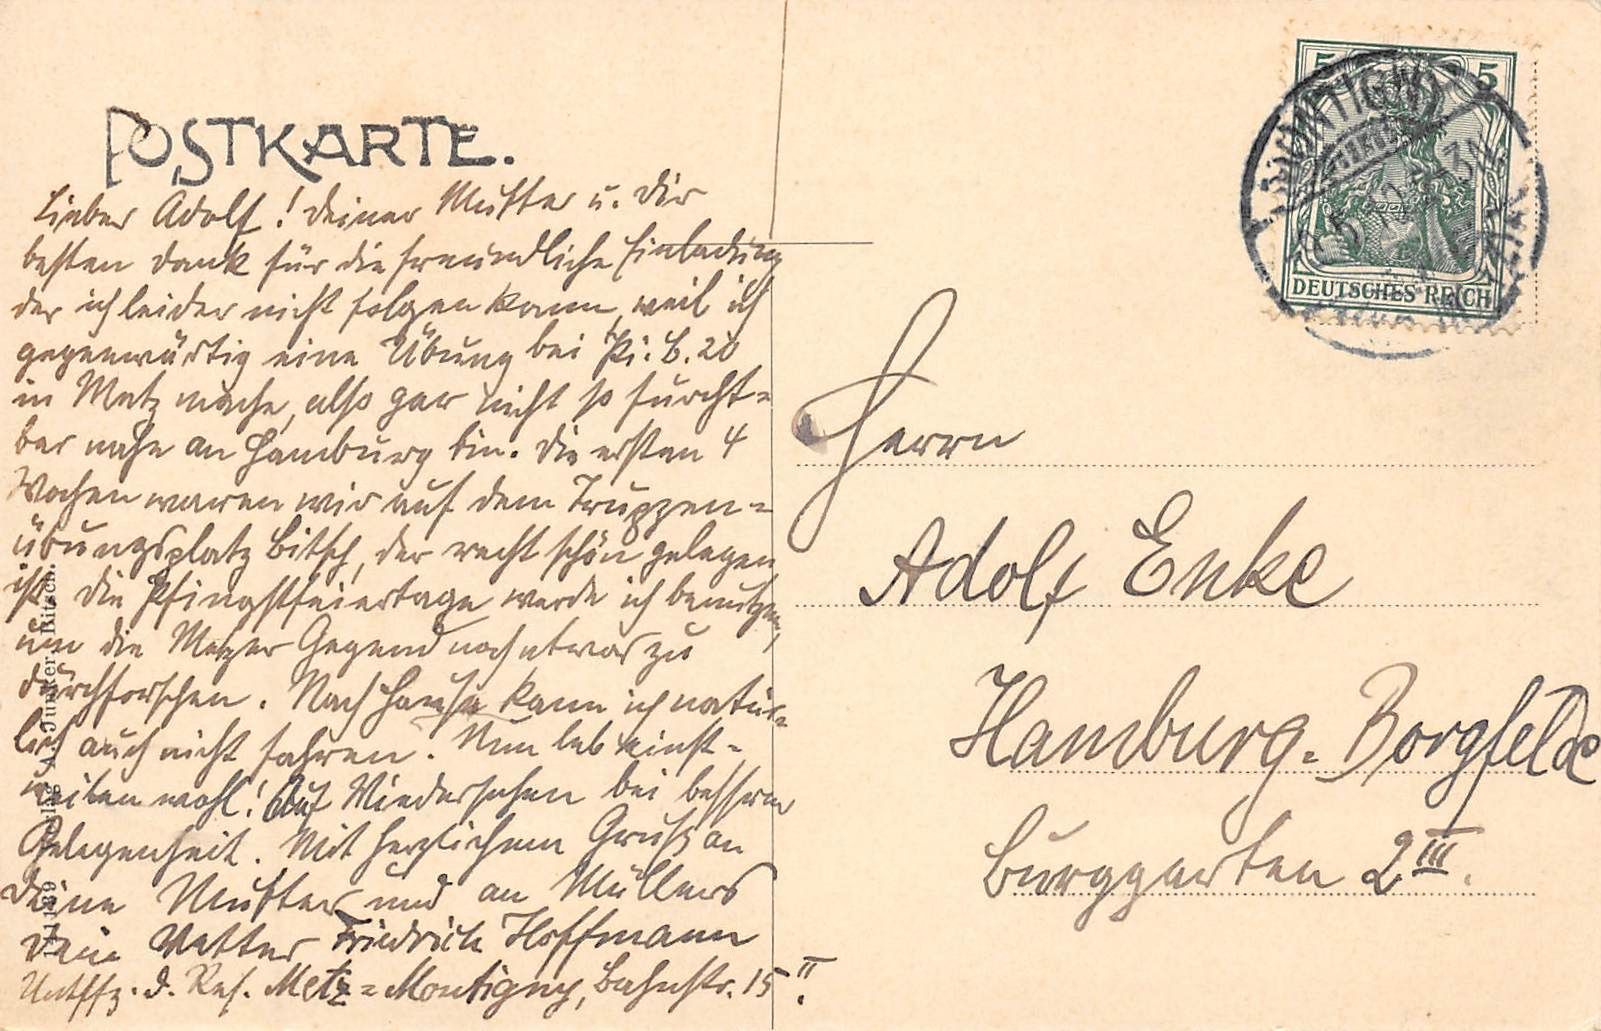 POSTKARTE.
Lieber Adolf! Deiner Mutter u. Dir
besten Dank für die freundliche Einladung
der ich leider nicht folgen kann, weil ich
gegenwärtig eine Übung bei Pi. B. 20
in Metz mache, also gar nicht so furcht=
bar nahe an Hamburg bin. Die ersten 4
Wochen waren wir auf dem Truppen=
übungsplatz Bitsch, der recht schön gelegen
ist. Die Pfingstfeiertage werde ich benutzen,
um die Metzer Gegend noch etwas zu
durchforschen. Nach Hause kann ich natür=
lich auch nicht fahren. Nun leb einst=
weilen wohl! Auf Wiedersehen bei besserer
Gelegenheit. Mit herzlichem Gruß an
Deine Mutter und an Müllers
Dein Vetter Friedrich Hoffmann
Untffz. d. Res. Metz=Montigny, Bahnstr. 15 II.
Verlag A. Junker, Bitsch.
5 5
DEUTSCHES REICH
MONTIGNY
Herrn
Adolf Enke
Hamburg=Borgfelde
Burggarten 2 III.